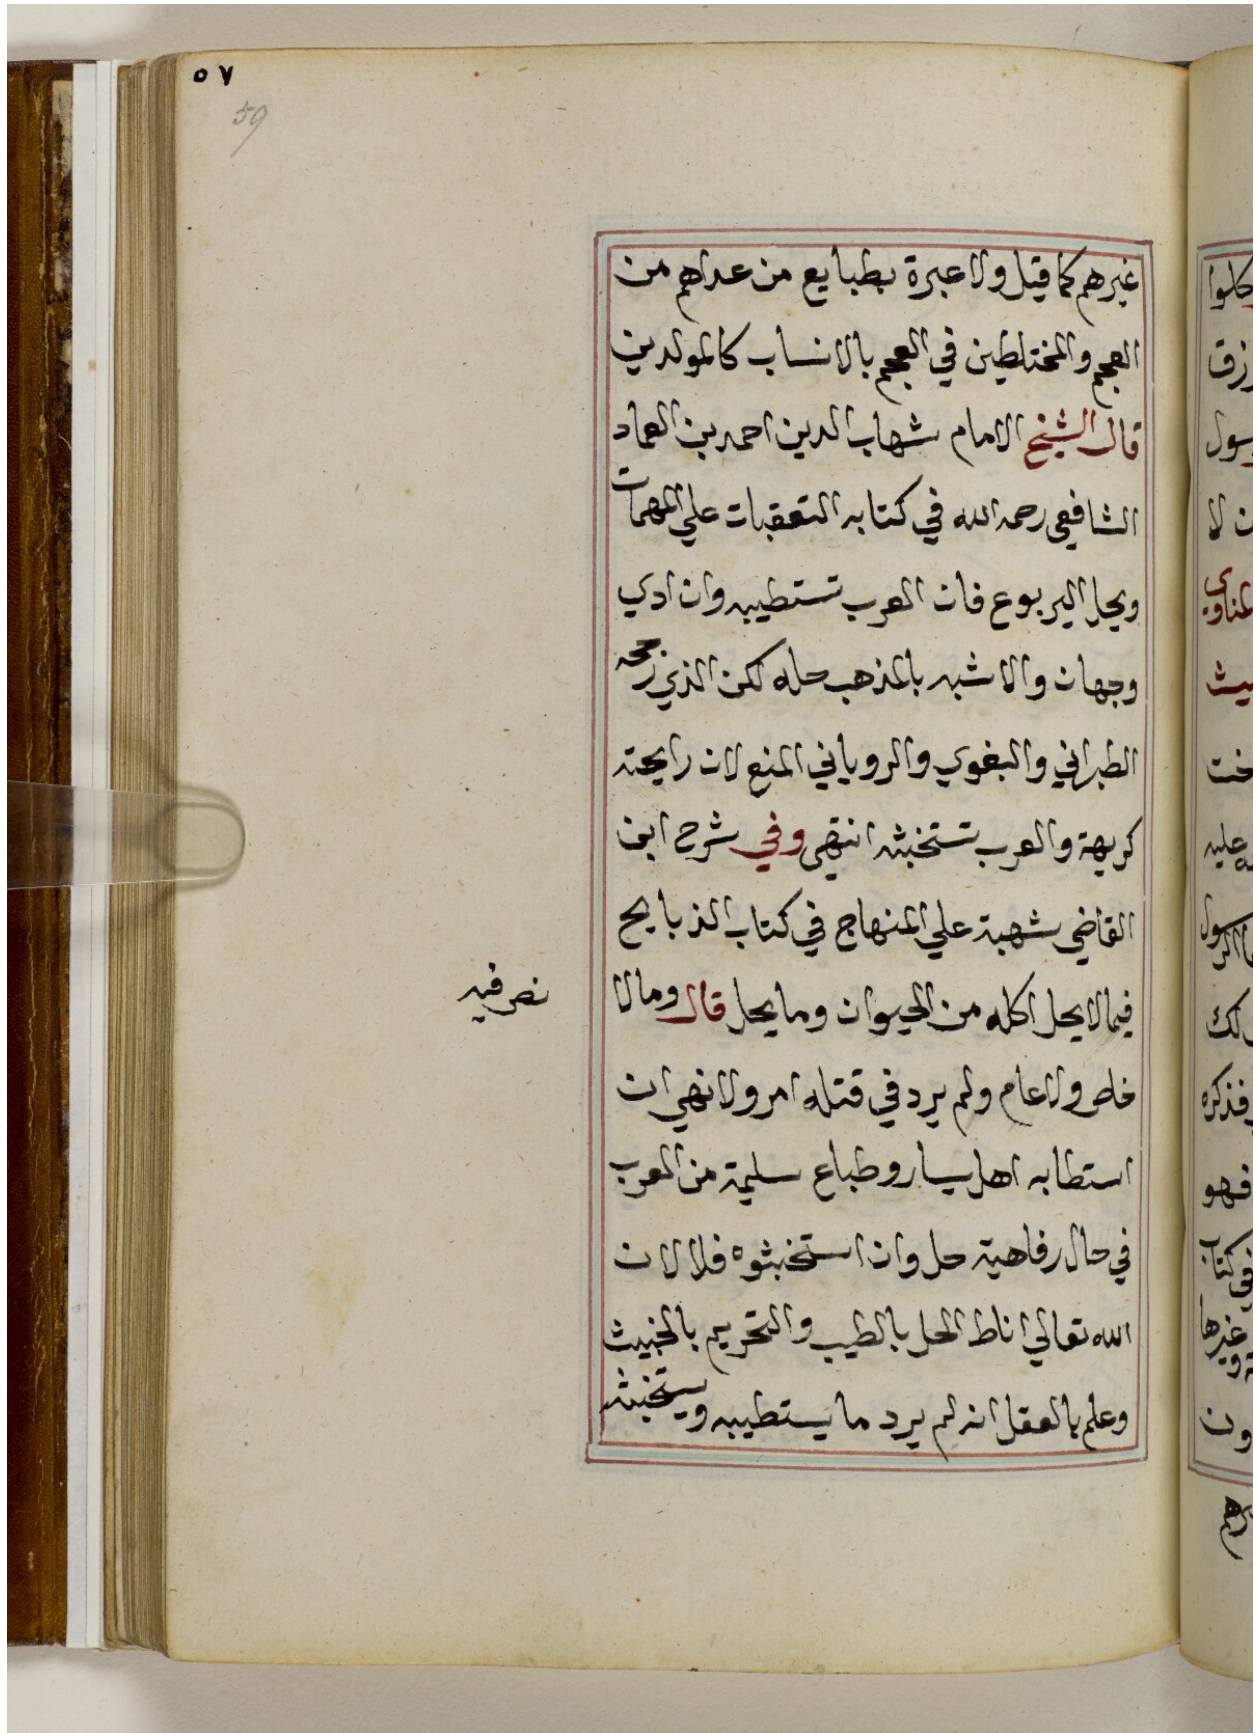 ٥٧
59
غيرهم كما قيل ولا عبرة بطبايع من عداهم من
العجم والمختلطين في العجم بالانساب كالمولدين
قال الشيخ الامام شهاب الدين احمد بن العماد
الشافعى رحمه الله في كتابه التعقبات علي المهمات
ويحل اليربوع فان العرب تستطيبه وان ادي
وجهان والاشبه بالمذهب حله لكن الذي رجحه
الطبراني والبغوي والروياني المنع لان رايحته
كريهة والعرب تستخبثه انتهى وفي شرح ابن
القاضي شهبة علي المنهاج في كتاب الذبايح
فيما لا يحل اكله من الحيوان وما يحل قال وما لا
نص فيه
خاص ولا عام ولم يرد في قتله امر ولا نهي ان
استطابه اهل يسار وطباع سليمة من العرب
في حال رفاهية حل وان استخبثوه فلا لان
الله تعالي اناط الحل بالطيب والتحريم بالخبيث
وعلم بالعقل انه لم يرد ما يستطيبه ويستخبثه
كلوا
رزق
ن لا
المناوي
عليه
فذكره
فهو
وغيرها
ون